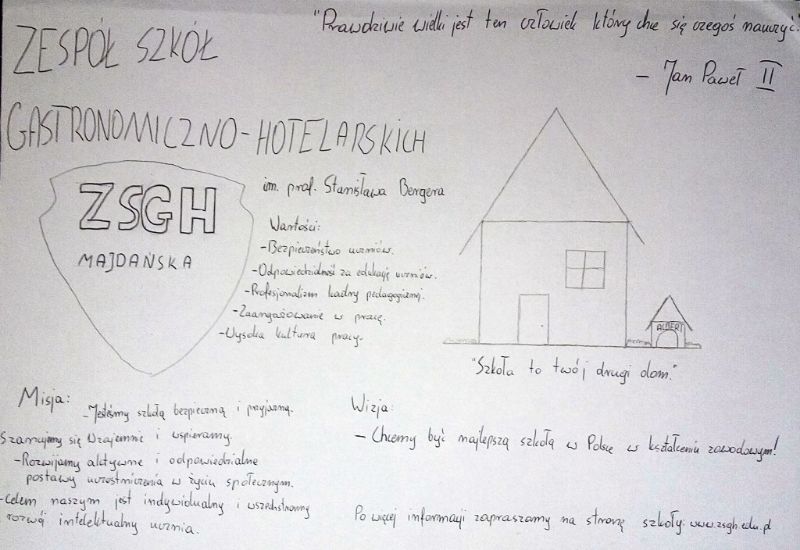 ZESPÓŁ SZKÓŁ
GASTRONOMICZNO-HOTELARSKICH
"Prawdziwie wielki jest ten człowiek który chce się czegoś nauczyć".
- Jan Paweł II
ZSGH
MAJDAŃSKA
im. prof. Stanisława Bergera
Wartości:
-Bezpieczeństwo uczniów.
-Odpowiedzialność za edukację uczniów.
-Profesjonalizm kadry pedagogicznej.
-Zaangażowanie w pracę.
-Wysoka kultura pracy.
ALBERT
"Szkoła to twój drugi dom."
Misja:
-Jesteśmy szkołą bezpieczną i przyjazną.
Szanujemy się wzajemnie i wspieramy.
-Rozwijamy aktywne i odpowiedzialne
postawy uczestniczenia w życiu społecznym.
-Celem naszym jest indywidualny i wszechstronny
rozwój intelektualny ucznia.
Wizja:
- Chcemy być najlepszą szkołą w Polsce w kształceniu zawodowym!
Po więcej informacji zapraszamy na stronę szkoły: www.zsgh.edu.pl